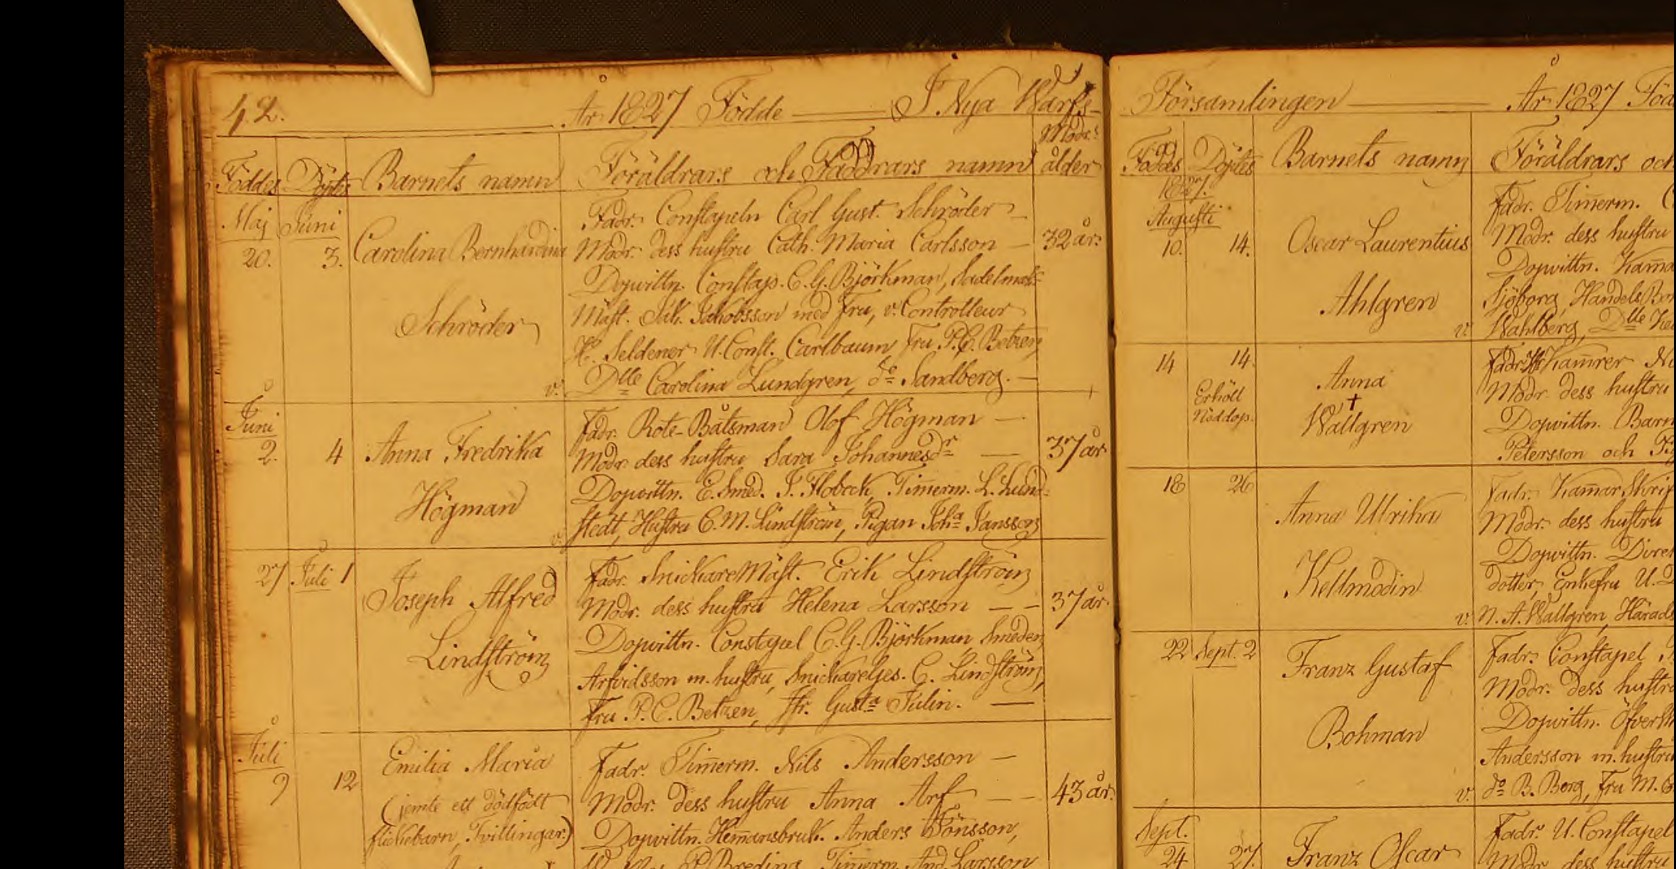 42. År 1827 Födde I Nya Warfs-
Födde Döpte Barnets namn Föräldrars och Faddrars namn Modr:s ålder
Maj Juni
20. 3. Carolina Bernhardina
Schröder
Fadr. Constapeln Carl Gust. Schröder
Modr. dess hustru Cath. Maria Carlsson 32 år.
Dopvittn. Constap. C. G. Björkman, Sadelmak-
Mäst. Jakobsson med Fru, v. Controlleur
H. Seldener U. Const. Carlbaum, Fru P. C. Betzen
v. Dlle Carolina Lundgren, do Sandberg.
Juni
2. 4 Anna Fredrika
Högman
Fadr. Rote-Båtsman Olof Högman
Modr. dess hustru Sara Johannesdr 37 år
Dopvittn. E. Smed. J. Flobeck, Timerm. L. Lund-
stedt, Hustru C. M. Lindström, Pigan Joha Jansson
27 Juli 1 Joseph Alfred
Lindström
Fadr. SnickareMäst. Erik Lindström
Modr. dess hustru Helena Larsson 37 år
Dopvittn. Constapel C. G. Björkman Smeden
Arfvidsson m. hustru, Snickareges. C. Lindström,
Fru P. C. Betzen, Jfr. Gusta Julin.
Juli
9 12 Emilia Maria
(jemte ett dödfödt
flickebarn, Tvillingar)
Fadr. Timerm. Nils Andersson
Modr. dess hustru Anna Arf 43 år.
Dopvittn. Hemansbruk. Anders Jönsson,
Breding Timerm. And. Larsson
Församlingen År 1827 Föd
Föddes Döptes Barnets namn Föräldrars och
1827.
Augusti
10. 14. Oscar Laurentius
Ahlgren
Fadr. Timerm.
Modr. dess hustru
Dopvittn.
Sjöborg, Handels
v. Wahlberg, Dlle
14 14. Anna
Erhöll
Nöddop. Wallgren
Fadr. Kamrer
Modr. dess hustru
Dopvittn.
Petersson och
18 26 Anna Ulrika
Kellmodin
Fadr. KamarSkrif
Modr. dess hustru
Dopvittn. Direk
dotter, Enkefru U.
v. N. A. Wallgren Härads
22 Sept. 2 Franz Gustaf
Bohman
Fadr. Constapel
Modr. dess hustr
Dopvittn.
Andersson m. hustru
v. do B. Berg, Fru M.
Sept.
24 27. Franz Oscar
Fadr. U. Constapel
Modr. dess hustru